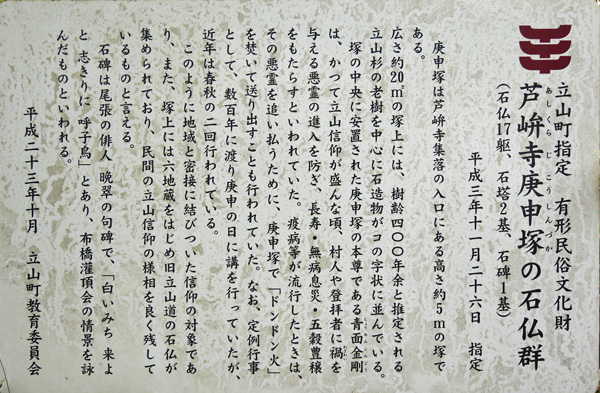 立山町指定 有形民俗文化財
芦峅寺庚申塚の石仏群
あしくらじこうしんづか
(石仏17躯、石塔2基、石碑1基)
平成三年十一月二十六日 指定
庚申塚は芦峅寺集落の入口にある高さ約5mの塚で
ある。
広さ約20㎡の塚上には、樹齢四〇〇年余と推定される
立山杉の老樹を中心に石造物がコの字状に並んでいる。
塚の中央に安置された庚申塚の本尊である青面金剛
は、かつて立山信仰が盛んな頃、村人や登拝者に禍を
与える悪霊の進入を防ぎ、長寿・無病息災・五穀豊穣
をもたらすといわれていた。疫病等が流行したときは、
その悪霊を追い払うために、庚申塚で「ドンドン火」
を焚いて送り出すことも行われていた。なお、定例行事
として、数百年に渡り庚申の日に講を行っていたが、
近年は春秋の二回行われている。
このように地域と密接に結びついた信仰の対象であ
り、また、塚上には六地蔵をはじめ旧立山道の石仏が
集められており、民間の立山信仰の様相を良く残して
いるものと言える。
石碑は尾張の俳人 晩翠の句碑で、「白いみち 来よ
と 志きりに 呼子鳥」とあり、布橋灌頂会の情景を詠
んだものといわれる。
平成二十三年十月 立山町教育委員会